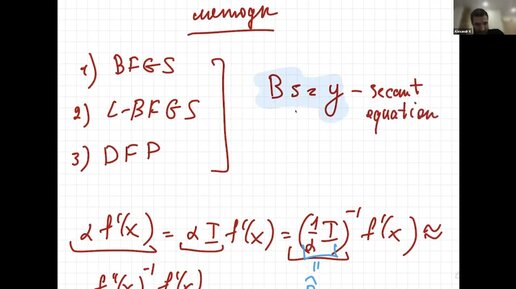 методы
1) BFGS
2) L-BFGS
3) DFP
Bs = y - secant
equation
αf'(x) = αIf'(x) = (1/α I)⁻¹ f'(x) ≈
f''(x)⁻¹ f'(x)